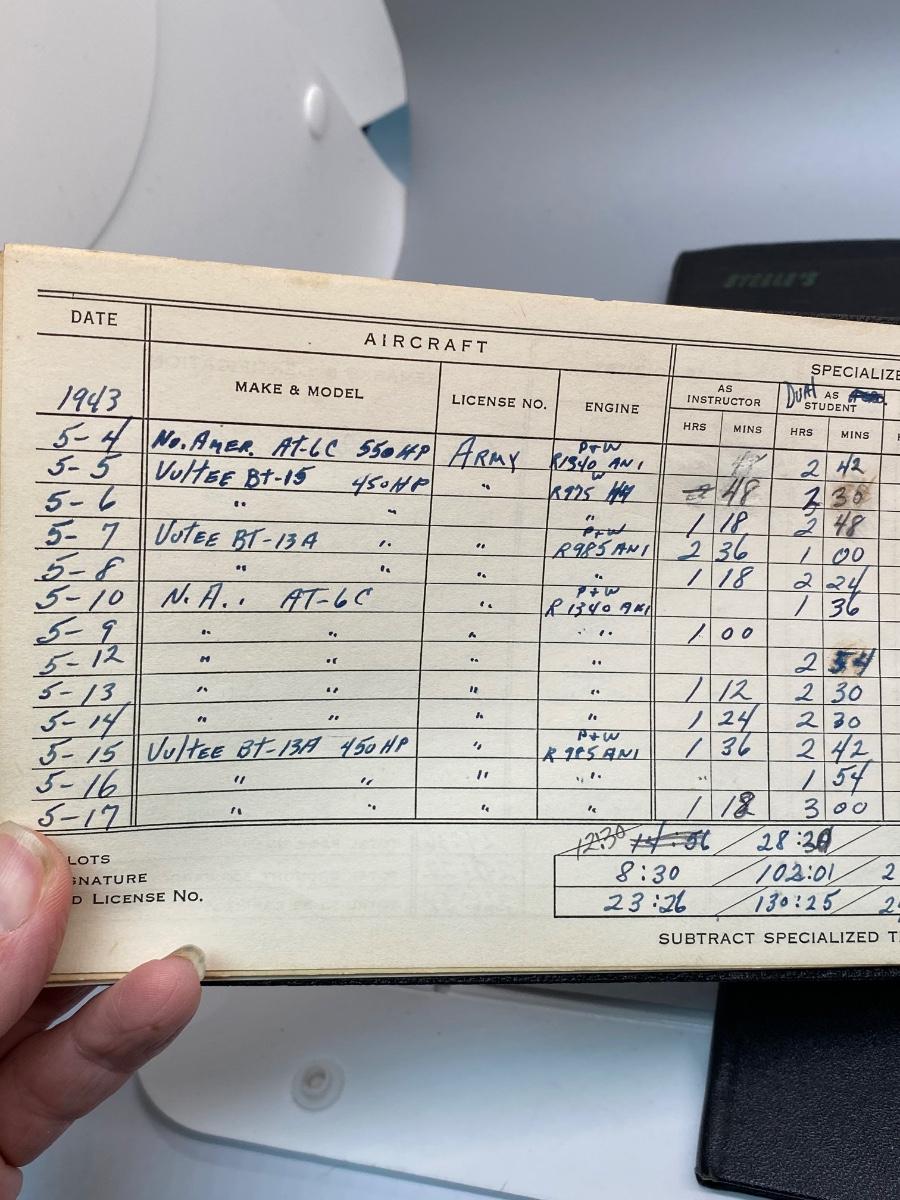 STEELE'S
DATE AIRCRAFT SPECIALIZE
MAKE & MODEL LICENSE NO. ENGINE AS INSTRUCTOR Dual AS STUDENT
1943 HRS MINS HRS MINS
5-4 No. Amer. AT-6C 550 HP ARMY P+W R1340 AN1 2 42
5-5 Vultee Bt-15 450 HP " W R975 48 2 30
5-6 " " " 1 18 2 48
5-7 Vutee BT-13A " " P+W R985 AN1 2 36 1 00
5-8 " " " " 1 18 2 24
5-10 N.A.. AT-6C " P+W R 1340 AN1 1 36
5-9 " " " " 1 00
5-12 " " " " 2 54
5-13 " " " " 1 12 2 30
5-14 " " " " 1 24 2 30
5-15 Vultee BT-13A 450 HP " P+W R 985 AN1 1 36 2 42
5-16 " " " " " 1 54
5-17 " " " " 1 18 3 00
LOTS 12:30 14:56 28:30
GNATURE 8:30 102:01 2
D LICENSE NO. 23:26 130:25 2
SUBTRACT SPECIALIZED T